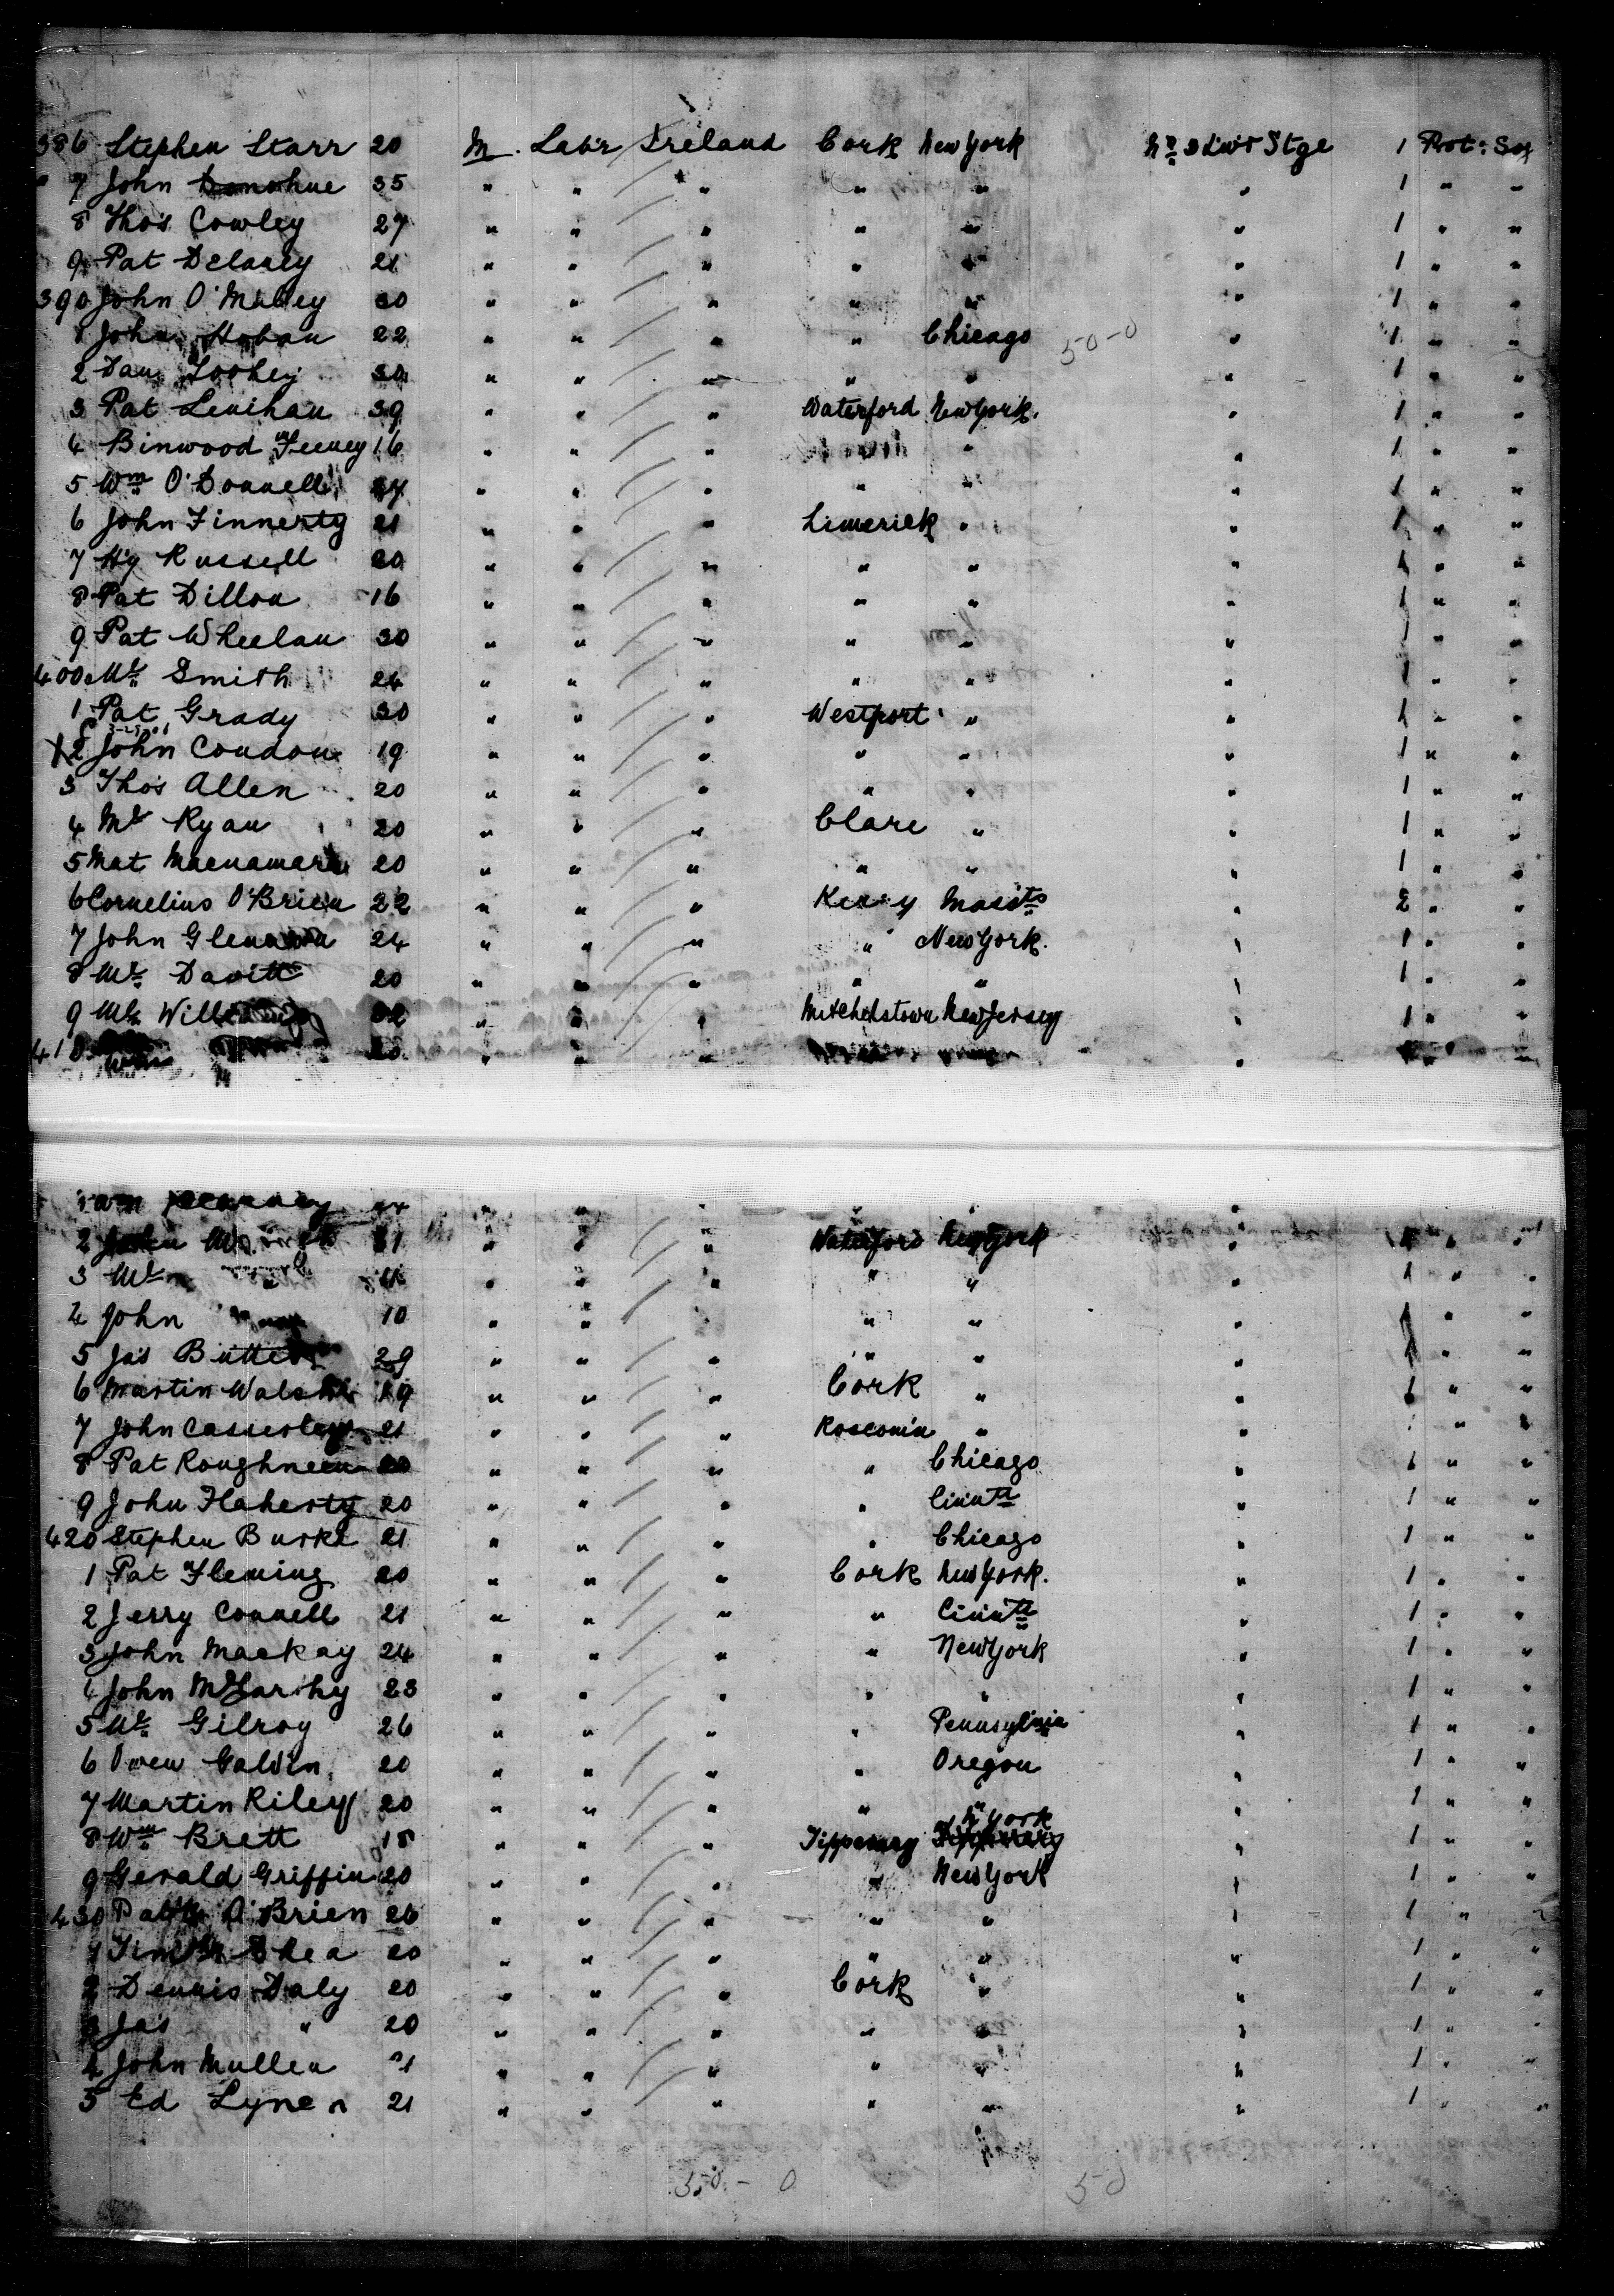 386 Stephen Starr 20 M. Lab'r Ireland Cork New York No 3 Lwr Stge 1 Prot: Soj
7 John Donohue 35 " " " " " " 1 " "
8 Thos Cowley 27 " " " " " " 1 " "
9 Pat Delaney 21 " " " " " " 1 " "
390 John O'Malley 30 " " " " " " 1 " "
1 John Hoban 22 " " " " Chicago 50-0 " 1 " "
2 Dan Toohey 30 " " " " " " 1 " "
3 Pat Lenihan 39 " " " Waterford New York. " 1 " "
4 Binwood Feeney 16 " " " " " 1 " "
5 Wm O'Donnell " " " " " " 1 " "
6 John Finnerty 21 " " " Limerick " " 1 " "
7 Hy Russell 20 " " " " " " 1 " "
8 Pat Dillon 16 " " " " " " 1 " "
9 Pat Wheelan 30 " " " " " " 1 " "
400 Ml Smith 24 " " " " " " 1 " "
1 Pat Grady 30 " " " Westport " " 1 " "
X2 John Condon 19 " " " " " " 1 " "
3 Thos Allen 20 " " " " " " 1 " "
4 Ml Ryan 20 " " " Clare " " 1 " "
5 Mat Macnamara 20 " " " " " " 1 " "
6 Cornelius O'Brien 22 " " " Kerry Massts " 2 " "
7 John 24 " " " " New York. " 1 " "
8 Ml Davitt 20 " " " " " " 1 " "
9 Ml 32 " " " Mitchelstown New Jersey " 1 " "
410 20 " " " " " "
1 Wm " " " " "
2 John 31 " " " Waterford New York " " "
3 Ml " " " " " " 1 " "
4 John 10 " " " " " 1 " "
5 Jas Butler 29 " " " " " " 1 " "
6 Martin Walsh 19 " " " Cork " " 1 " "
7 John Casserley 21 " " " Roscomn " " " "
8 Pat Roughneen 20 " " " " Chicago " 1 " "
9 John Flaherty 20 " " " " Cinnti " 1 " "
420 Stephen Burke 21 " " " " Chicago " 1 " "
1 Pat Fleming 20 " " " Cork New York. " 1 " "
2 Jerry Connell 21 " " " " Cinnti " 1 " "
3 John Mackay 24 " " " " New York " 1 " "
4 John McCarthy 23 " " " " " " 1 " "
5 Ml Gilroy 26 " " " " Pennsylinia " 1 " "
6 Owen Galvin 20 " " " " Oregon " 1 " "
7 Martin Riley 20 " " " " " " 1 " "
N York
8 Wm Brett 18 " " " Tipperary Tipperary " 1 " "
9 Gerald Griffin 20 " " " " New York " 1 " "
430 Patk O'Brien 26 " " " " " " 1 " "
1 Shea 20 " " " " " " 1 " "
2 Dennis Daly 20 " " " Cork " " 1 " "
3 Jas " 20 " " " " " " 1 " "
4 John Mullen 21 " " " " " " 1 " "
5 Ed Lynch 21 " " " " " " 1 " "
50 - 0 50